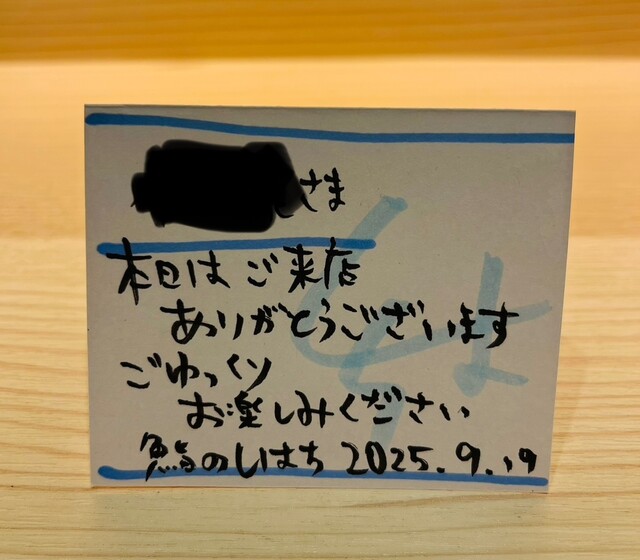 さま
本日はご来店
ありがとうございます
ごゆっくり
お楽しみください
鮨のしはち 2025.9.19